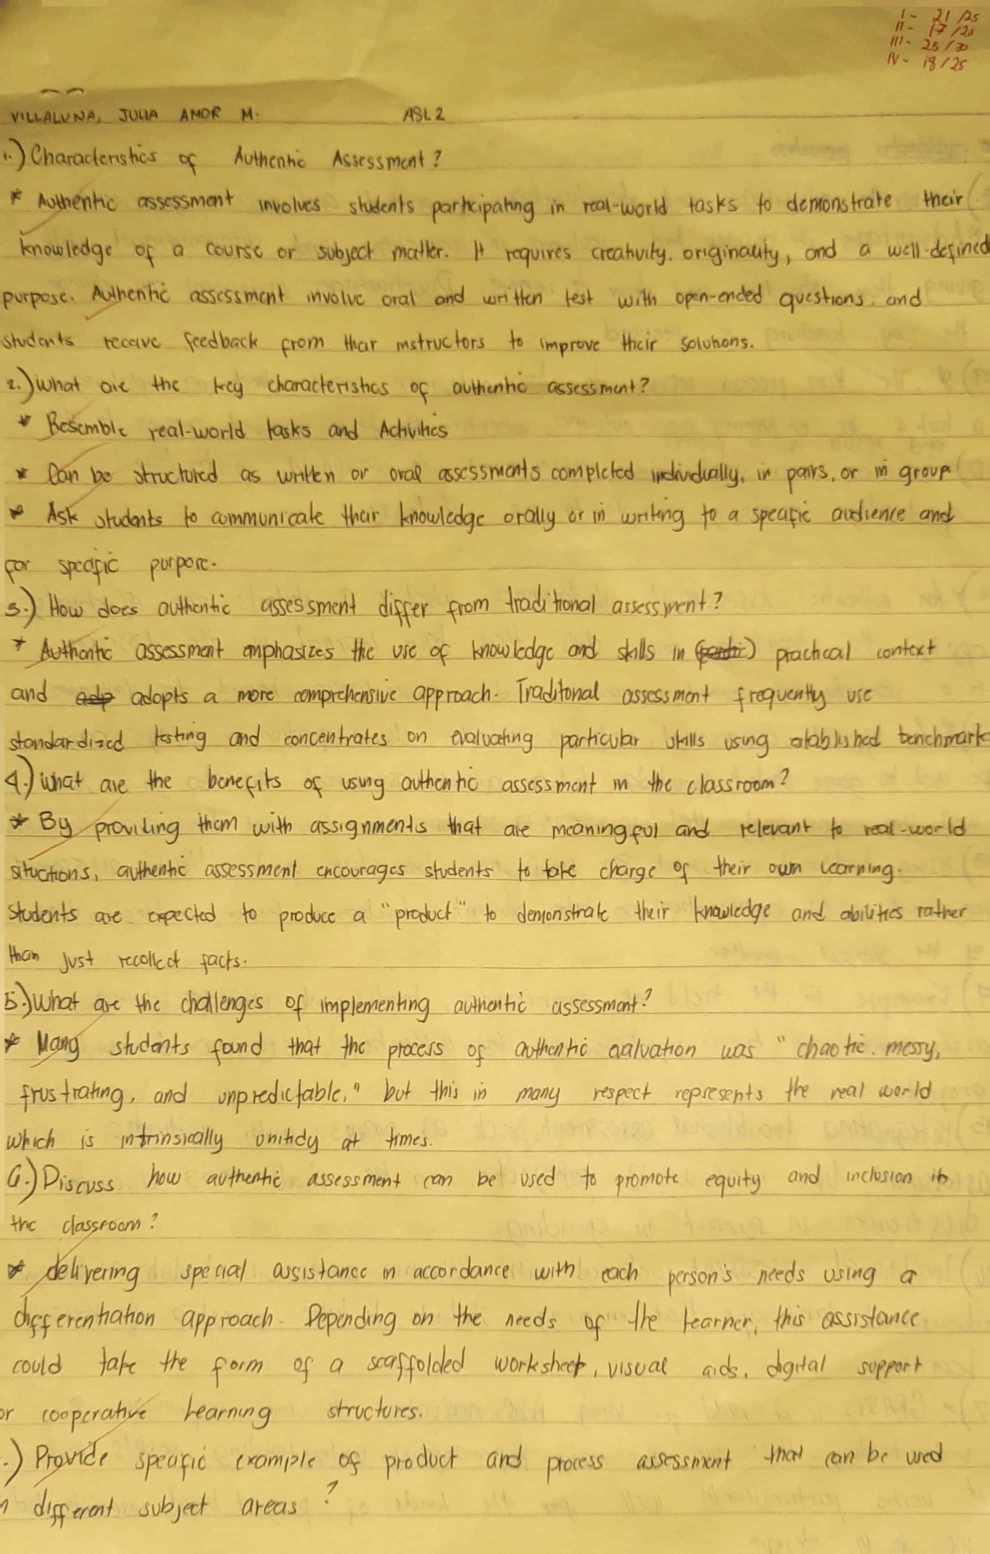 I - 21/25
II - 17/20
III - 25/30
IV - 18/25
VILLALUNA, JULIA AMOR M. ABL 2
1.) Characteristics of Authentic Assessment?
* Authentic assessment involves students participating in real-world tasks to demonstrate their
knowledge of a course or subject matter. It requires creativity, originality, and a well-defined
purpose. Authentic assessment involve oral and written test with open-ended questions, and
students receive feedback from their instructors to improve their solutions.
2.) What are the key characteristics of authentic assessment?
* Resemble real-world tasks and Activities
* Can be structured as written or oral assessments completed individually, in pairs, or in group
* Ask students to communicate their knowledge orally or in writing to a specific audience and
for specific purpose.
3.) How does authentic assessment differ from traditional assessment?
* Authentic assessment emphasizes the use of knowledge and skills in practical context
and adopts a more comprehensive approach. Traditonal assessment frequently use
standardized testing and concentrates on evaluating particular skills using established benchmark
4.) What are the benefits of using authentic assessment in the classroom?
* By providing them with assignments that are meaningful and relevant to real-world
situations, authentic assessment encourages students to take charge of their own learning.
Students are expected to produce a "product" to demonstrate their knowledge and abilities rather
than just recollect facts.
5.) What are the challenges of implementing authentic assessment?
* Many students found that the process of authentic evaluation was "chaotic, messy,
frustrating, and unpredictable," but this in many respect represents the real world
which is intrinsically untidy at times.
6.) Discuss how authentic assessment can be used to promote equity and inclusion in
the classroom?
* delivering special assistance in accordance with each person's needs using a
differentiation approach. Depending on the needs of the learner, this assistance
could take the form of a scaffolded worksheet, visual aids, digital support
or cooperative learning structures.
.) Provide specific example of product and process assessment that can be used
n different subject areas?